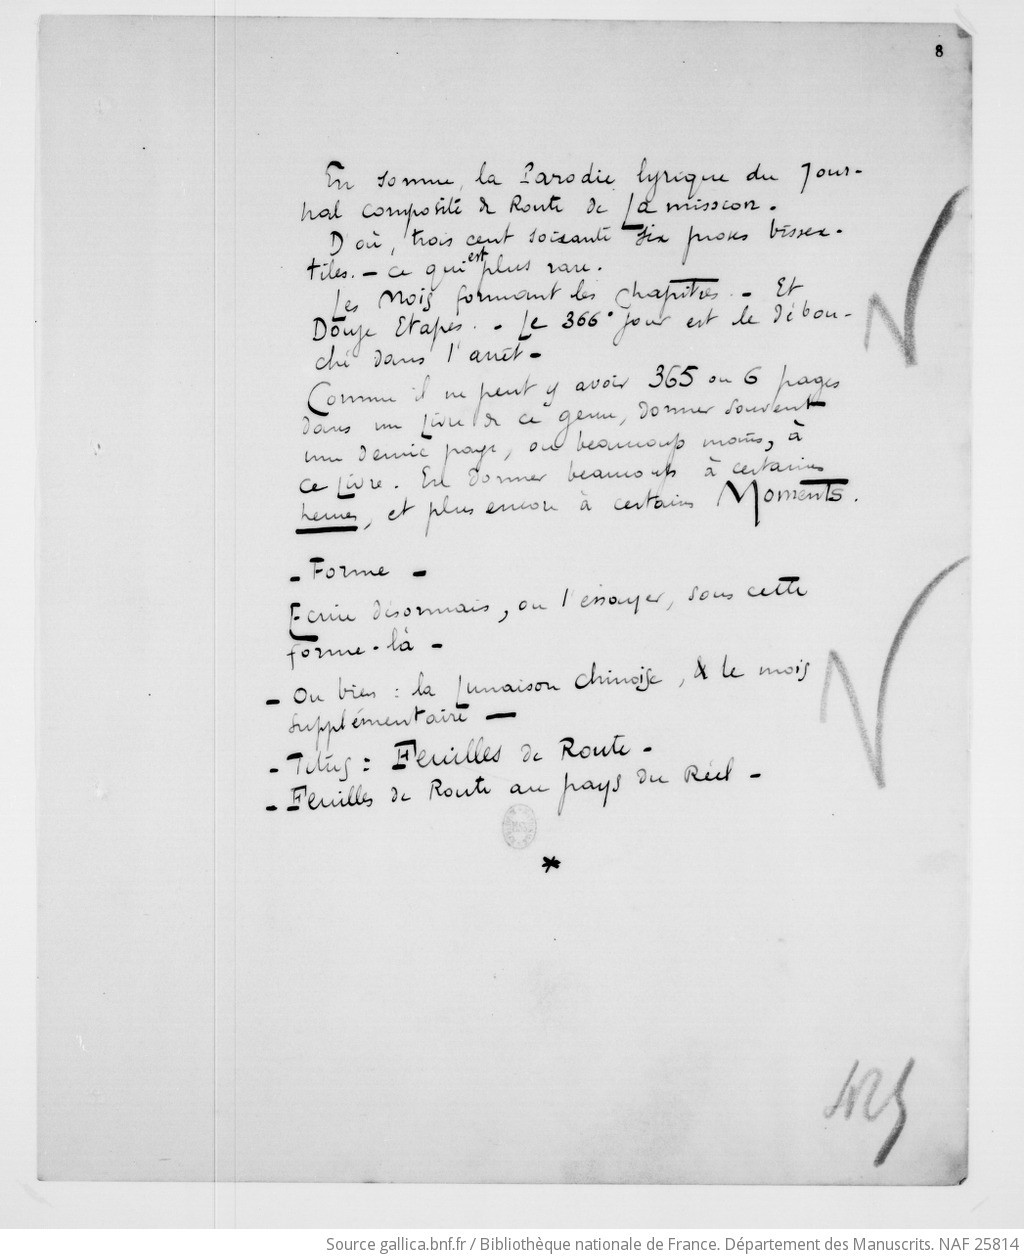 8
En somme, la Parodie lyrique du Jour-
nal composité de Route de La mission.
D'où, trois cent soixante six proses bissex-
tiles. – ce qui est plus rare.
Les Mois formant les chapitres. – Et
Douze Etapes. – Le 366° jour est le débou-
ché dans l'arrêt –
Comme il ne peut y avoir 365 ou 6 pages
dans un Livre de ce genre, donner souvent
une demie page, ou beaucoup moins, à
ce Livre. En donner beaucoup à certaines
heures, et plus encore à certains Moments.
– Forme –
Ecrire désormais, ou l'essayer, sous cette
forme-là –
– Ou bien : la Lunaison chinoise, & le mois
supplémentaire –
– Titres : Feuilles de Route –
– Feuilles de Route au pays du Réel –
*
Source gallica.bnf.fr / Bibliothèque nationale de France. Département des Manuscrits. NAF 25814